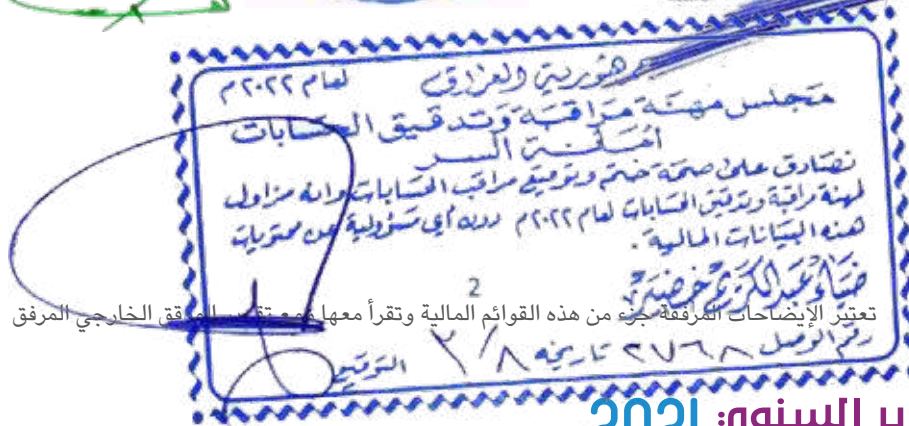 جمهورية العراق لعام ٢٠٢٢ م
مجلس مهنة مراقبة وتدقيق الحسابات
أمانة السر
نصادق على صحة ختم وتوقيع مراقب الحسابات وانه مزاول
لمهنة مراقبة وتدقيق الحسابات لعام ٢٠٢٢ م دون أي مسؤولية عن محتويات
هذه البيانات المالية .
ضياء عبد الكريم خضير
2
تعتبر الإيضاحات المرفقة جزء من هذه القوائم المالية وتقرأ معها ومع تقرير المدقق الخارجي المرفق
رقم الوصل ٢٧٦٨ تاريخه ٣/٨ التوقيع
ير السنوي 2021